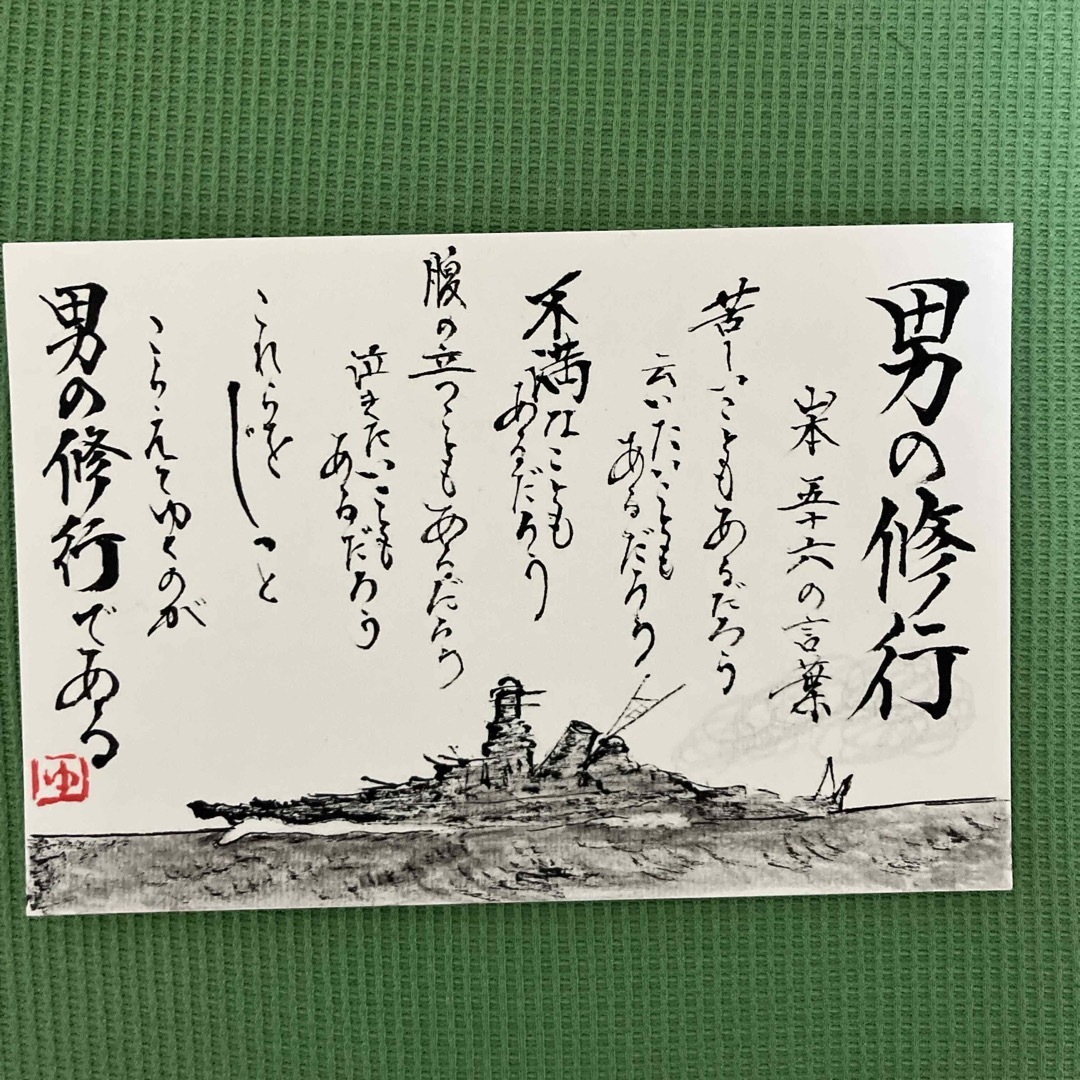 男の修行
山本五十六の言葉
苦しいこともあるだろう
云いたいことも
あるだろう
不満なことも
あるだろう
腹の立つこともあるだろう
泣きたいことも
あるだろう
これらをじっと
こらえてゆくのが
男の修行である
ゆ